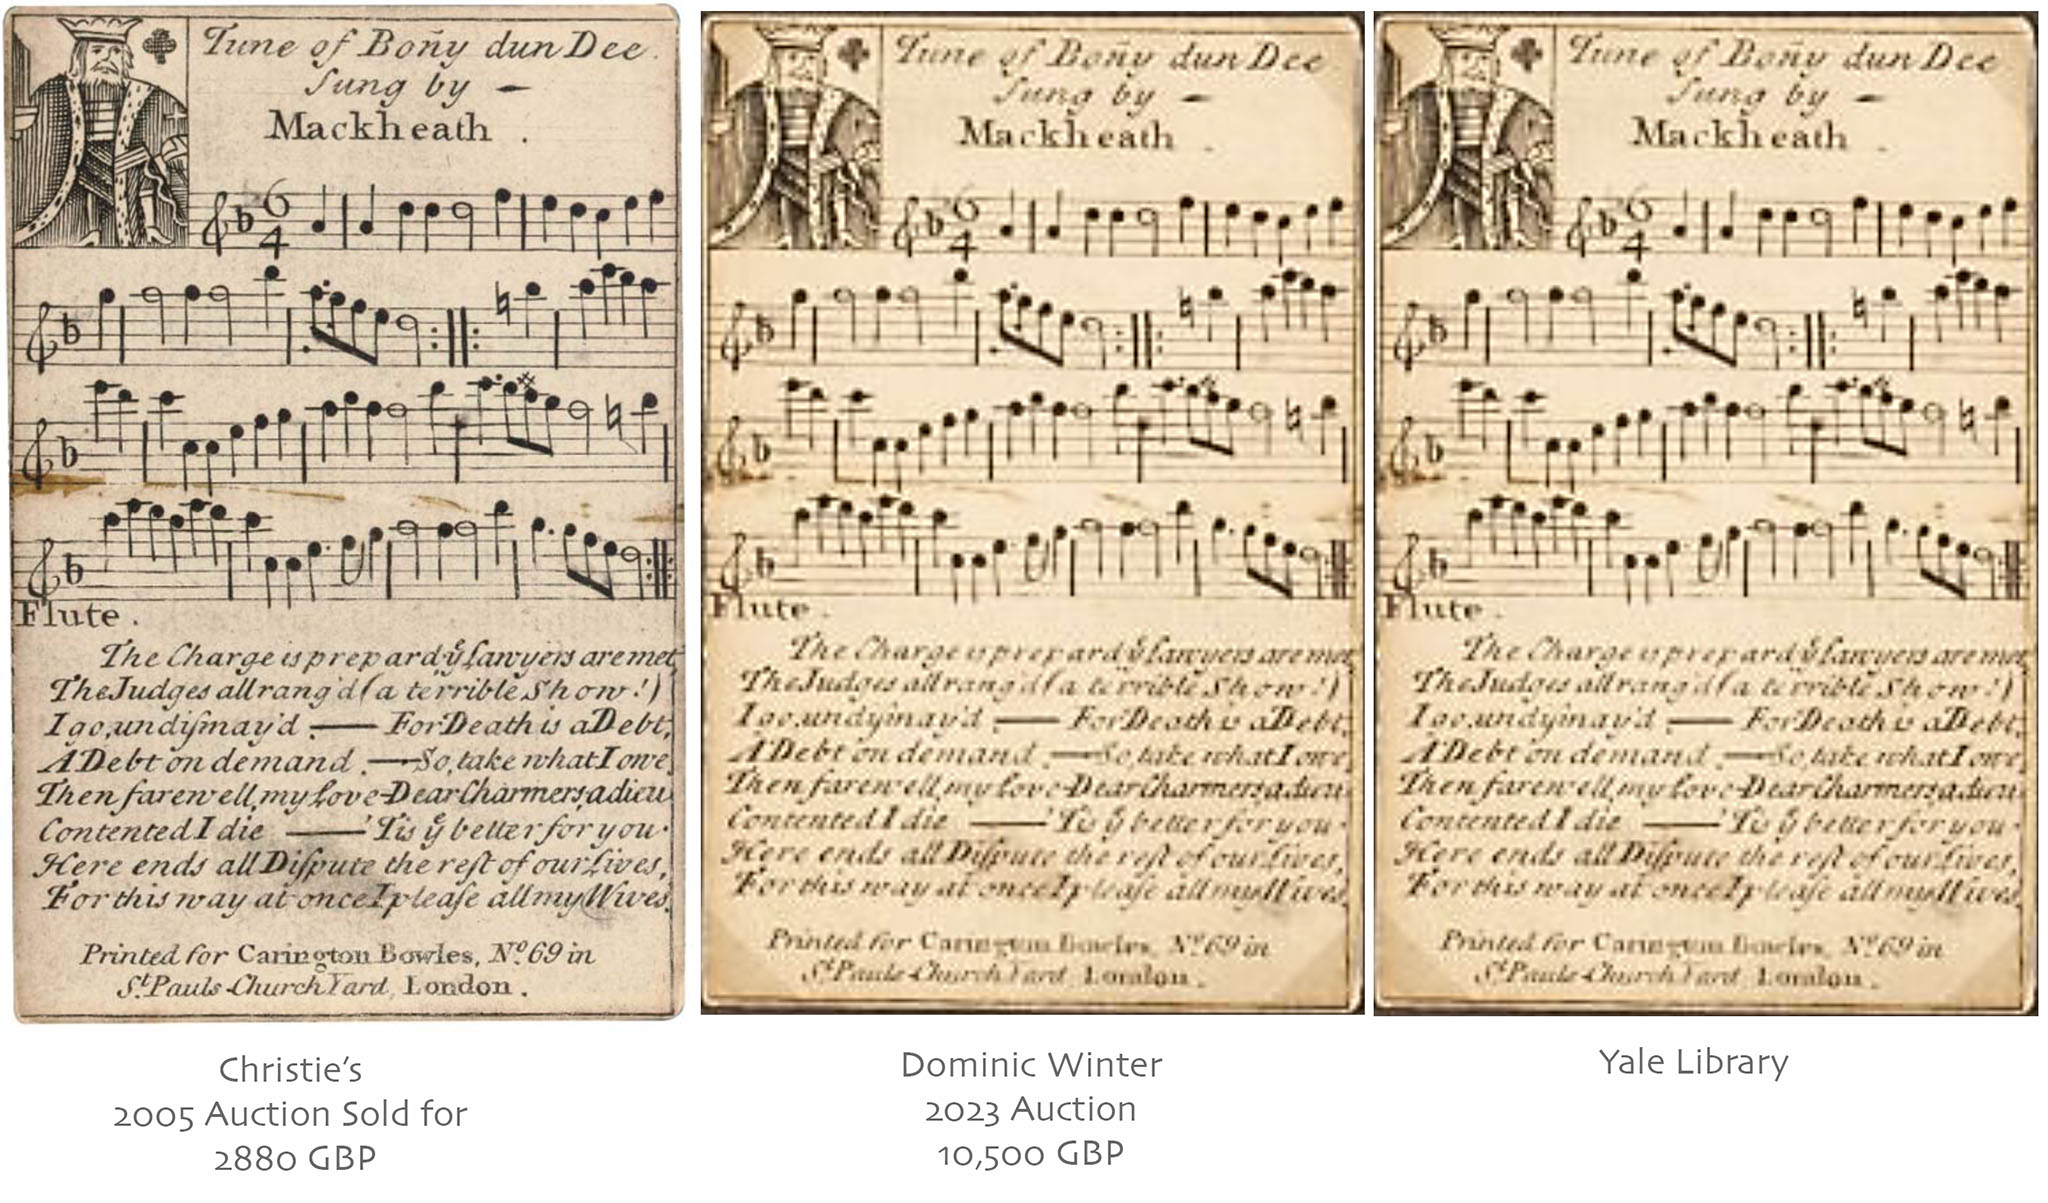 Tune of Boñy dun Dee.
Sung by —
Mackheath.
6
4
Flute.
The Charge is prepard yͤ Lawyers are met
The Judges all rang'd (a terrible Show!)
I go, undiſmay'd — For Death is a Debt,
A Debt on demand. — So, take what I owe,
Then farewell, my Love — Dear Charmers, adieu
Contented I die — 'Tis yͤ better for you.
Here ends all Diſpute the reſt of our Lives,
For this way at once I pleaſe all my Wives.
Printed for Carington Bowles, No. 69 in
St. Pauls Church Yard, London.
Christie's
2005 Auction Sold for
2880 GBP
Tune of Boñy dun Dee
Sung by —
Mackheath.
6
4
Flute.
The Charge is prepard yͤ Lawyers are met
The Judges all rang'd (a terrible Show!)
I go, undiſmay'd — For Death is a Debt,
A Debt on demand. — So, take what I owe,
Then farewell, my Love — Dear Charmers, adieu
Contented I die — 'Tis yͤ better for you.
Here ends all Diſpute the reſt of our Lives,
For this way at once I pleaſe all my Wives.
Printed for Carington Bowles, No. 69 in
St. Pauls Church Yard, London.
Dominic Winter
2023 Auction
10,500 GBP
Tune of Boñy dun Dee
Sung by —
Mackheath.
6
4
Flute.
The Charge is prepard yͤ Lawyers are met
The Judges all rang'd (a terrible Show!)
I go, undiſmay'd — For Death is a Debt,
A Debt on demand. — So, take what I owe,
Then farewell, my Love — Dear Charmers, adieu
Contented I die — 'Tis yͤ better for you.
Here ends all Diſpute the reſt of our Lives,
For this way at once I pleaſe all my Wives.
Printed for Carington Bowles, No. 69 in
St. Pauls Church Yard, London.
Yale Library